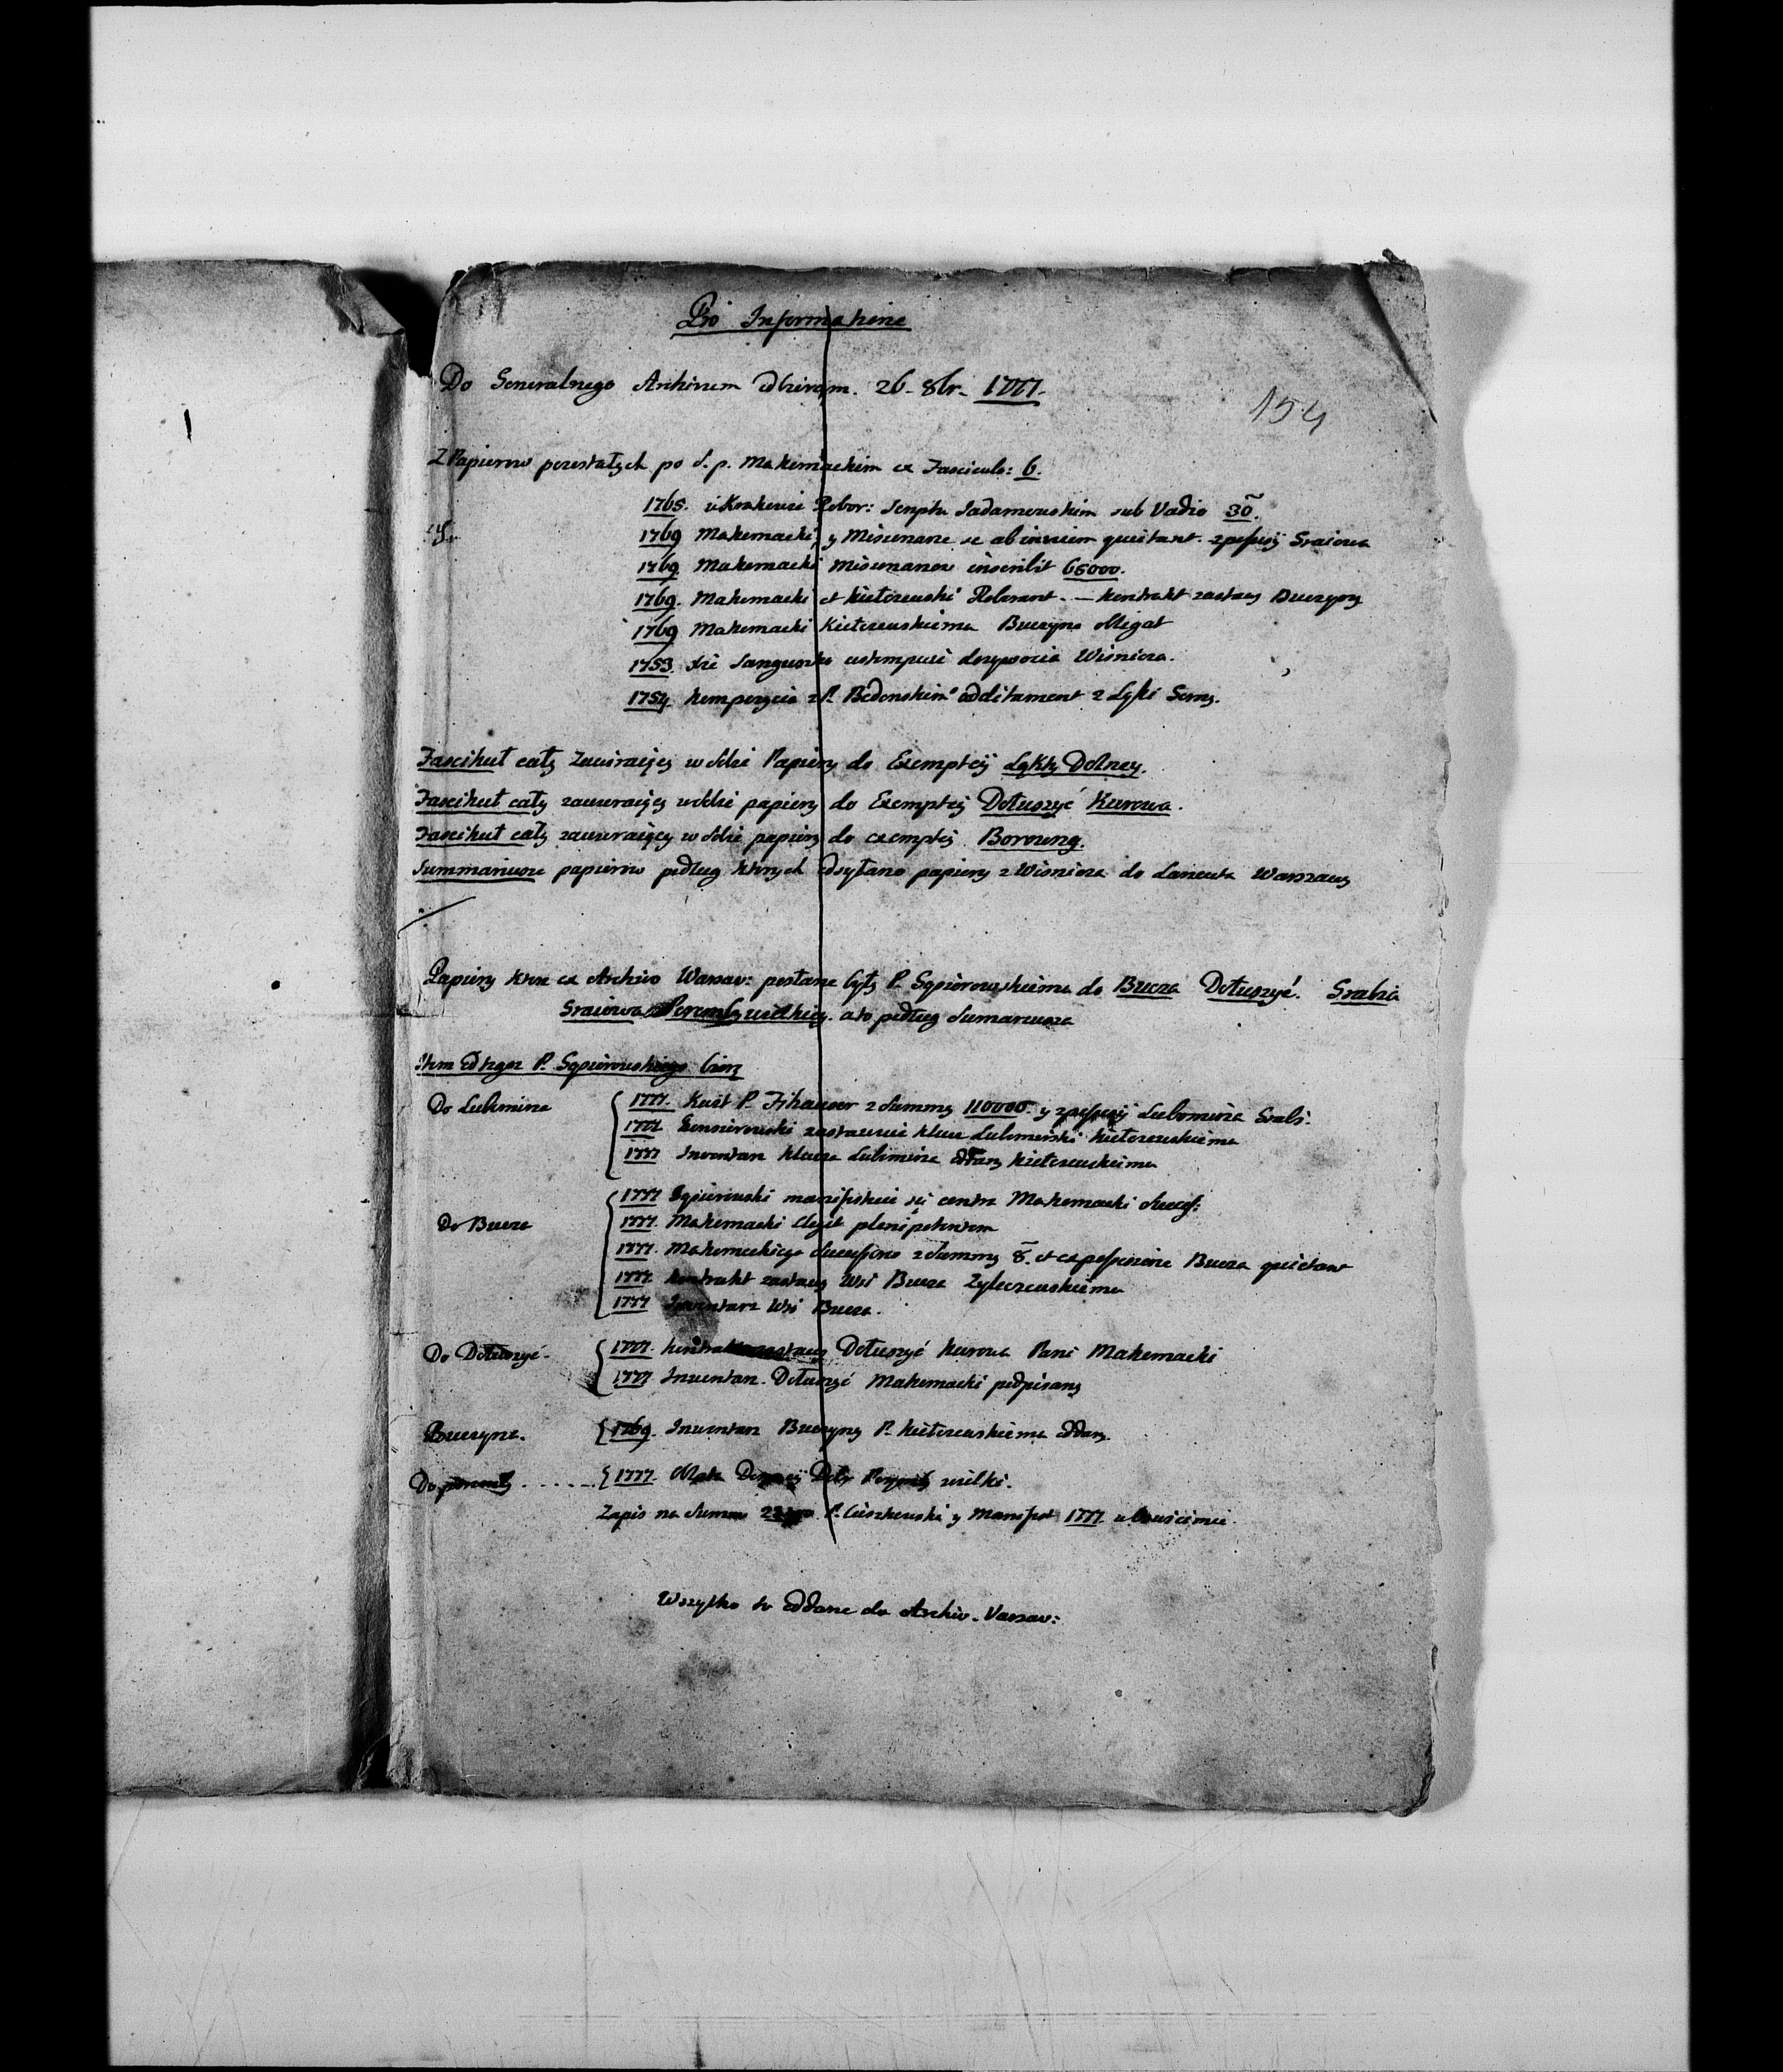 Pro Informatione
Do Generalnego Archivum odbieram. 26. 8br. 1777.
154
Z Papierow pozostałych po S. p. Makomackim ex Fasciculo: 6.
1765. w Krakowie Robor: Scripta Sadomowskim sub Vadio 30.
1769 Makomacki y Misionarze se ab invicem quietant. z possessyi Sraiowa
1769 Makomacki Misionarzom inscribit 65000.
1769. Makomacki et Kiełczewski Roborant. — kontrakt zastawy Buczyny
1769 Makomacki Kiełczewskiemu Buczyne obligat
1753. Xże Sanguszko ustempuie dozywocia Wisnicza.
1754. komportacia z P. Bedonskim additament z Łąki
Fascikuł cały zawieraiący w Sobie Papiery do Exempcyi Łąkty Dolney.
Fascikuł cały zawieraiący w Sobie papiery do Exempcyi Dołuszyć Kurowa.
Fascikuł cały zawieraiący w Sobie papiery do exempcyi Borowny.
Summariusze papierow podług ktorych odsyłano papiery z Wisnicza do Lancuta Warszawy
Papiery ktore ex Archivo Warsav: posłane były P. Gąsiorowskiemu do Bucza Dołuszyć. Grabia
Sraiowa Poremby wielkiey. a to podług Sumariusza
Item od tegoz P. Gąsiorowskiego biorę
Do Lubomirza
1777. Kwit P. Fihauser z Summy 110000. y z possessyi Lubomirza Grab:
1777. Gonsiorowski zastawuie klucz Lubomirski Kiełczewskiemu
1777 Inwentarz klucza Lubomirza oddany Kiełczewskiemu
Do Bucza
1777 Gąsiorowski manifestuie się contra Makomacki Success:
1777. Makomacki elegit plenipotentem
1777. Makomackiego Successores z Summy 8. et ex possessione Bucza quietant
1777. kontrakt zastawy Wsi Bucza Zyleczewskiemu
1777 Inwentarz Wsi Bucza.
Do Dołuszyć.
1777. kontrakt zastawy Dołuszyć Kurowa Pani Makomacki
1777 Inwentarz Dołuszyć Makomacki podpisany
Buczyna.
1769. Inwentarz Buczyny P. Kiełczewskiemu oddany
Do poremby
1777. Oblata wielki.
Zapis na Summe P. Cieszkowski y Manifest 1777.
Wszytko to oddane do Archiv. Varsav: